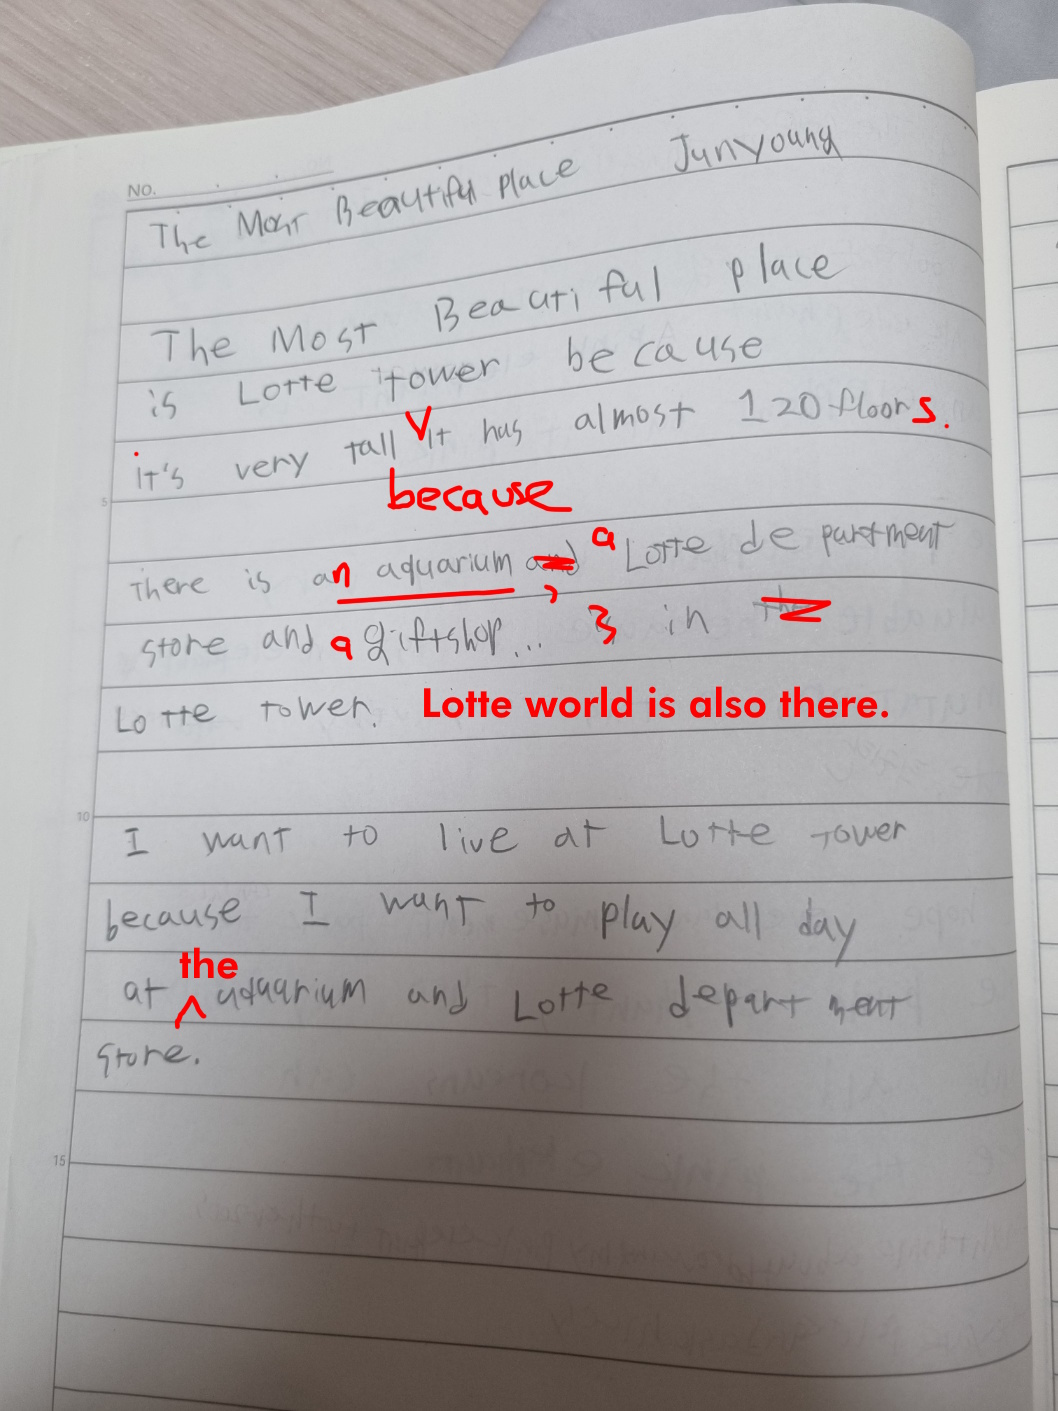 NO.
The Most Beautiful place Junyoung
The Most Beautiful place
is Lotte tower because
it's very tall it has almost 120 floors.
because
5
There is an aquarium and, a Lotte department
store and a giftshop... in the
Lotte tower. Lotte world is also there.
10
I want to live at Lotte tower
because I want to play all day
the
at aquarium and Lotte department
store.
15